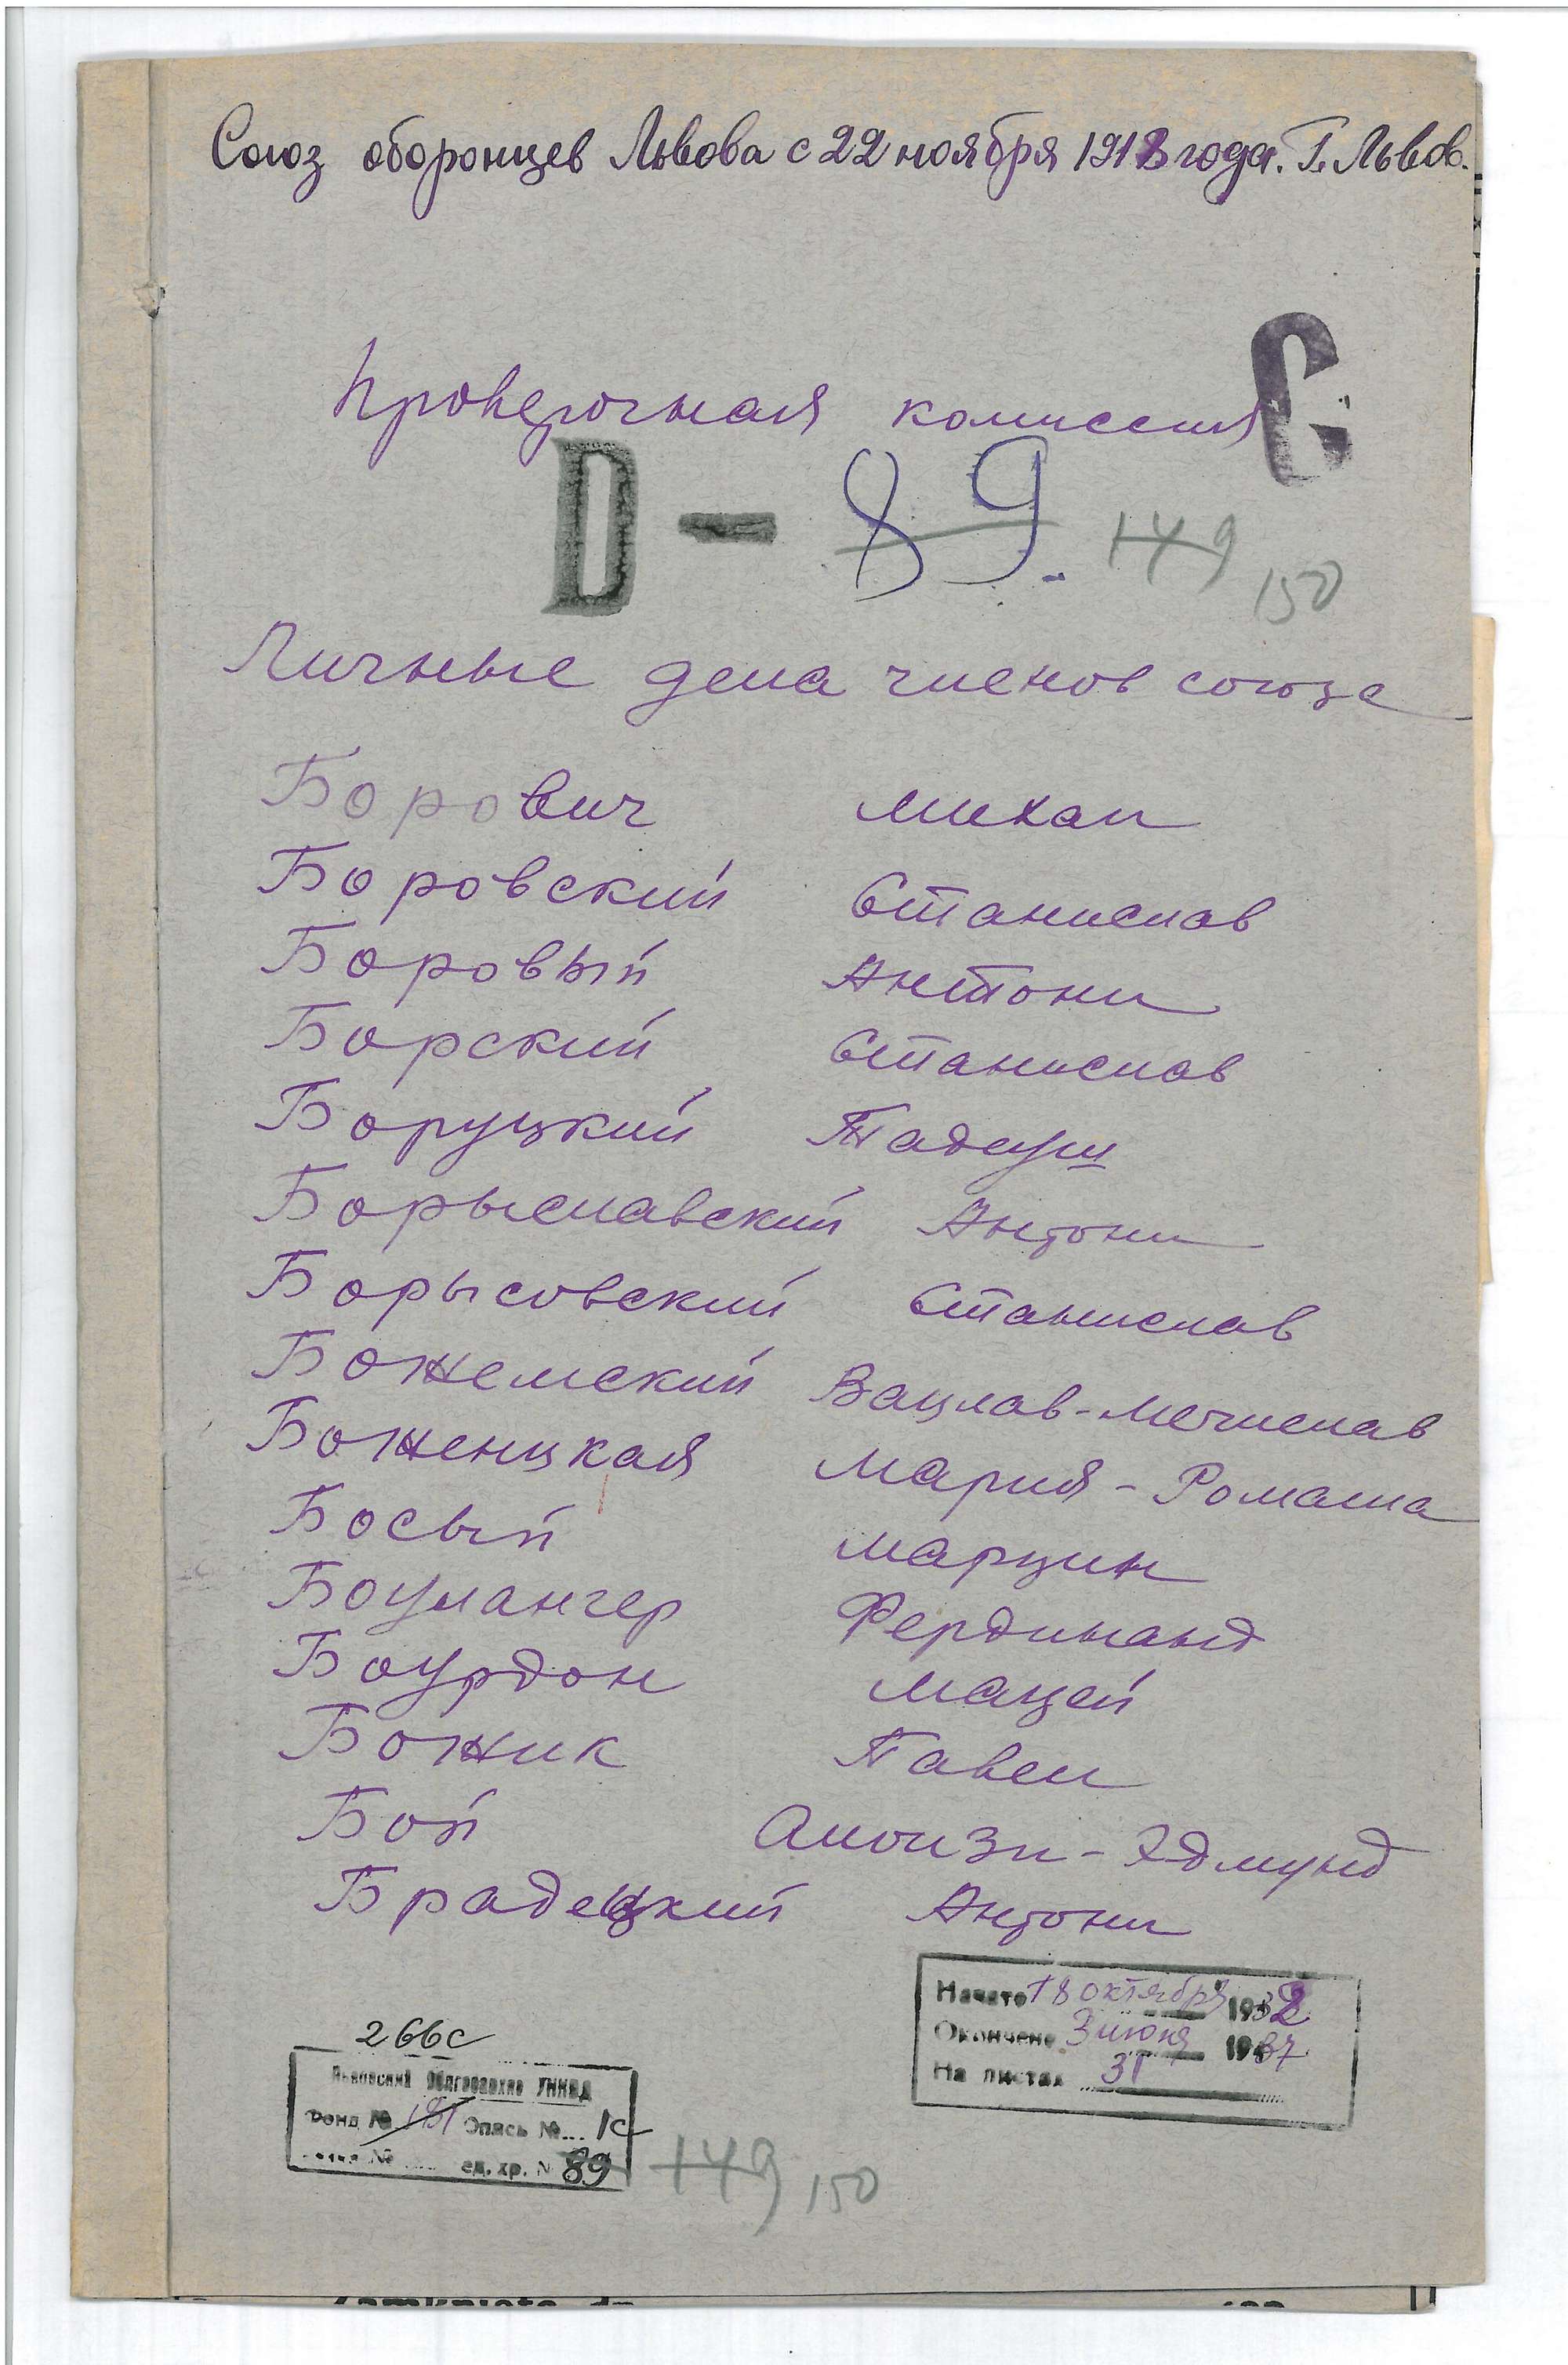 Союз оборонцев Львова с 22 ноября 1918 года. Г. Львов.
С
Проверочная комиссия
D - 89. 149 150
Личные дела членов союза
Борович Михал
Боровский Станислав
Боровый Антони
Борский Станислав
Боруцкий Тадеуш
Борыславский Антони
Борысовский Станислав
Божемский Вацлав-Мечислав
Боженцкая Мария-Романа
Босый Марцин
Боулангер Фердинанд
Боурдон Мацей
Божик Павел
Бой Алоизи-Эдмунд
Брадецкий Антони
Начато 18 октября 1932
Окончено 3 июня 1937
На листах 31
266с
Львовский Облгосархив УНКВД
Фонд № 181 Опись № 1с
№ ед. хр. № 89
149 150